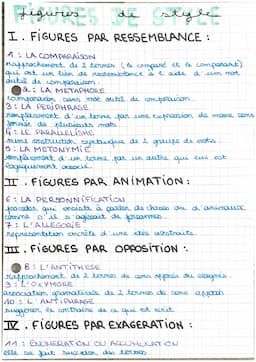 figures de style
FIGURES DE STYLE
I. FIGURES PAR RESSEMBLANCE :
1 : LA COMPARAISON
rapprochement de 2 termes (le comparé et le comparant)
qui ont un lien de ressemblance à l'aide d'un mot
outil de comparaison
2 : LA METAPHORE
comparaison sans mot outil de comparaison.
3 : LA PERIPHRASE
remplacement d'un terme par une expression de même sens
formée de plusieurs mots.
4 : LE PARALLELISME
même construction syntaxique de 2 groupes de mots.
5 : LA METONYMIE
remplacement d'un terme par un autre qui lui est
logiquement associé.
II. FIGURES PAR ANIMATION :
6 : LA PERSONNIFICATION
procédés qui consiste à parler de choses ou d'animaux
comme s'il s'agissait de personnes.
7 : L'ALLEGORIE
représentation concrète d'une idée abstraite.
III. FIGURES PAR OPPOSITION :
8 : L'ANTITHESE
rapprochement de 2 termes de sens opposés ou éloignés.
9 : L'OXYMORE
association grammaticale de 2 termes de sens opposés
10 : L'ANTIPHRASE
suggérer le contraire de ce qui est écrit
IV. FIGURES PAR EXAGERATION :
11 : ENUMERATION OU ACCUMULATION
elle se fait succéder des termes